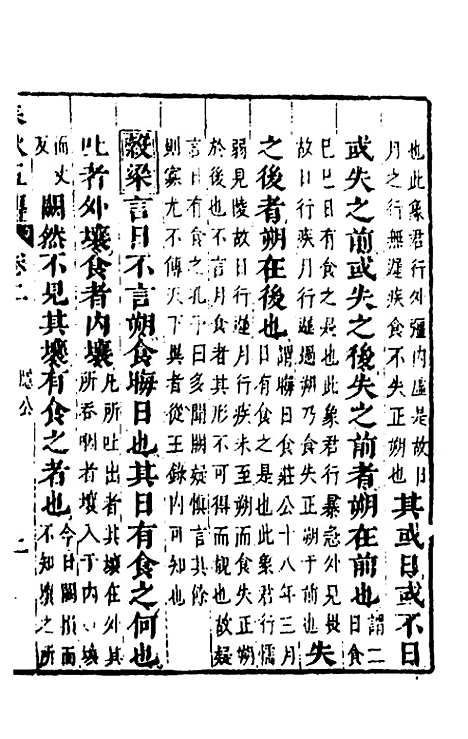 也此象君行外彊內虛是故日
月之行無遲疾食不失正朔也其或日或不日
或失之前或失之後失之前者朔在前也謂二日食
巳巳日有食之是也此象君行暴急外見畏
故日行疾月行遲過朔乃食失正朔于前也失
之後者朔在後也謂晦日食莊公十八年三月
日有食之是也此象君行懦
弱見陵故日行遲月行疾未至朔而食失正朔
於後也不言月食日者其形不可得而覩也故疑
言日有食之孔子曰多聞闕疑慎言其餘
則寡尤不傳天下異者從王錄內可知也
穀梁言日不言朔食晦日也其日有食之何也
吐者外壤食者內壤凡所吐出者其壤在外其
所吞咽者壤入于內壤
闕然不見其壤有食之者也今日闕損而
不知壤之所
而文
及
春秋五傳 卷二
隱公
二